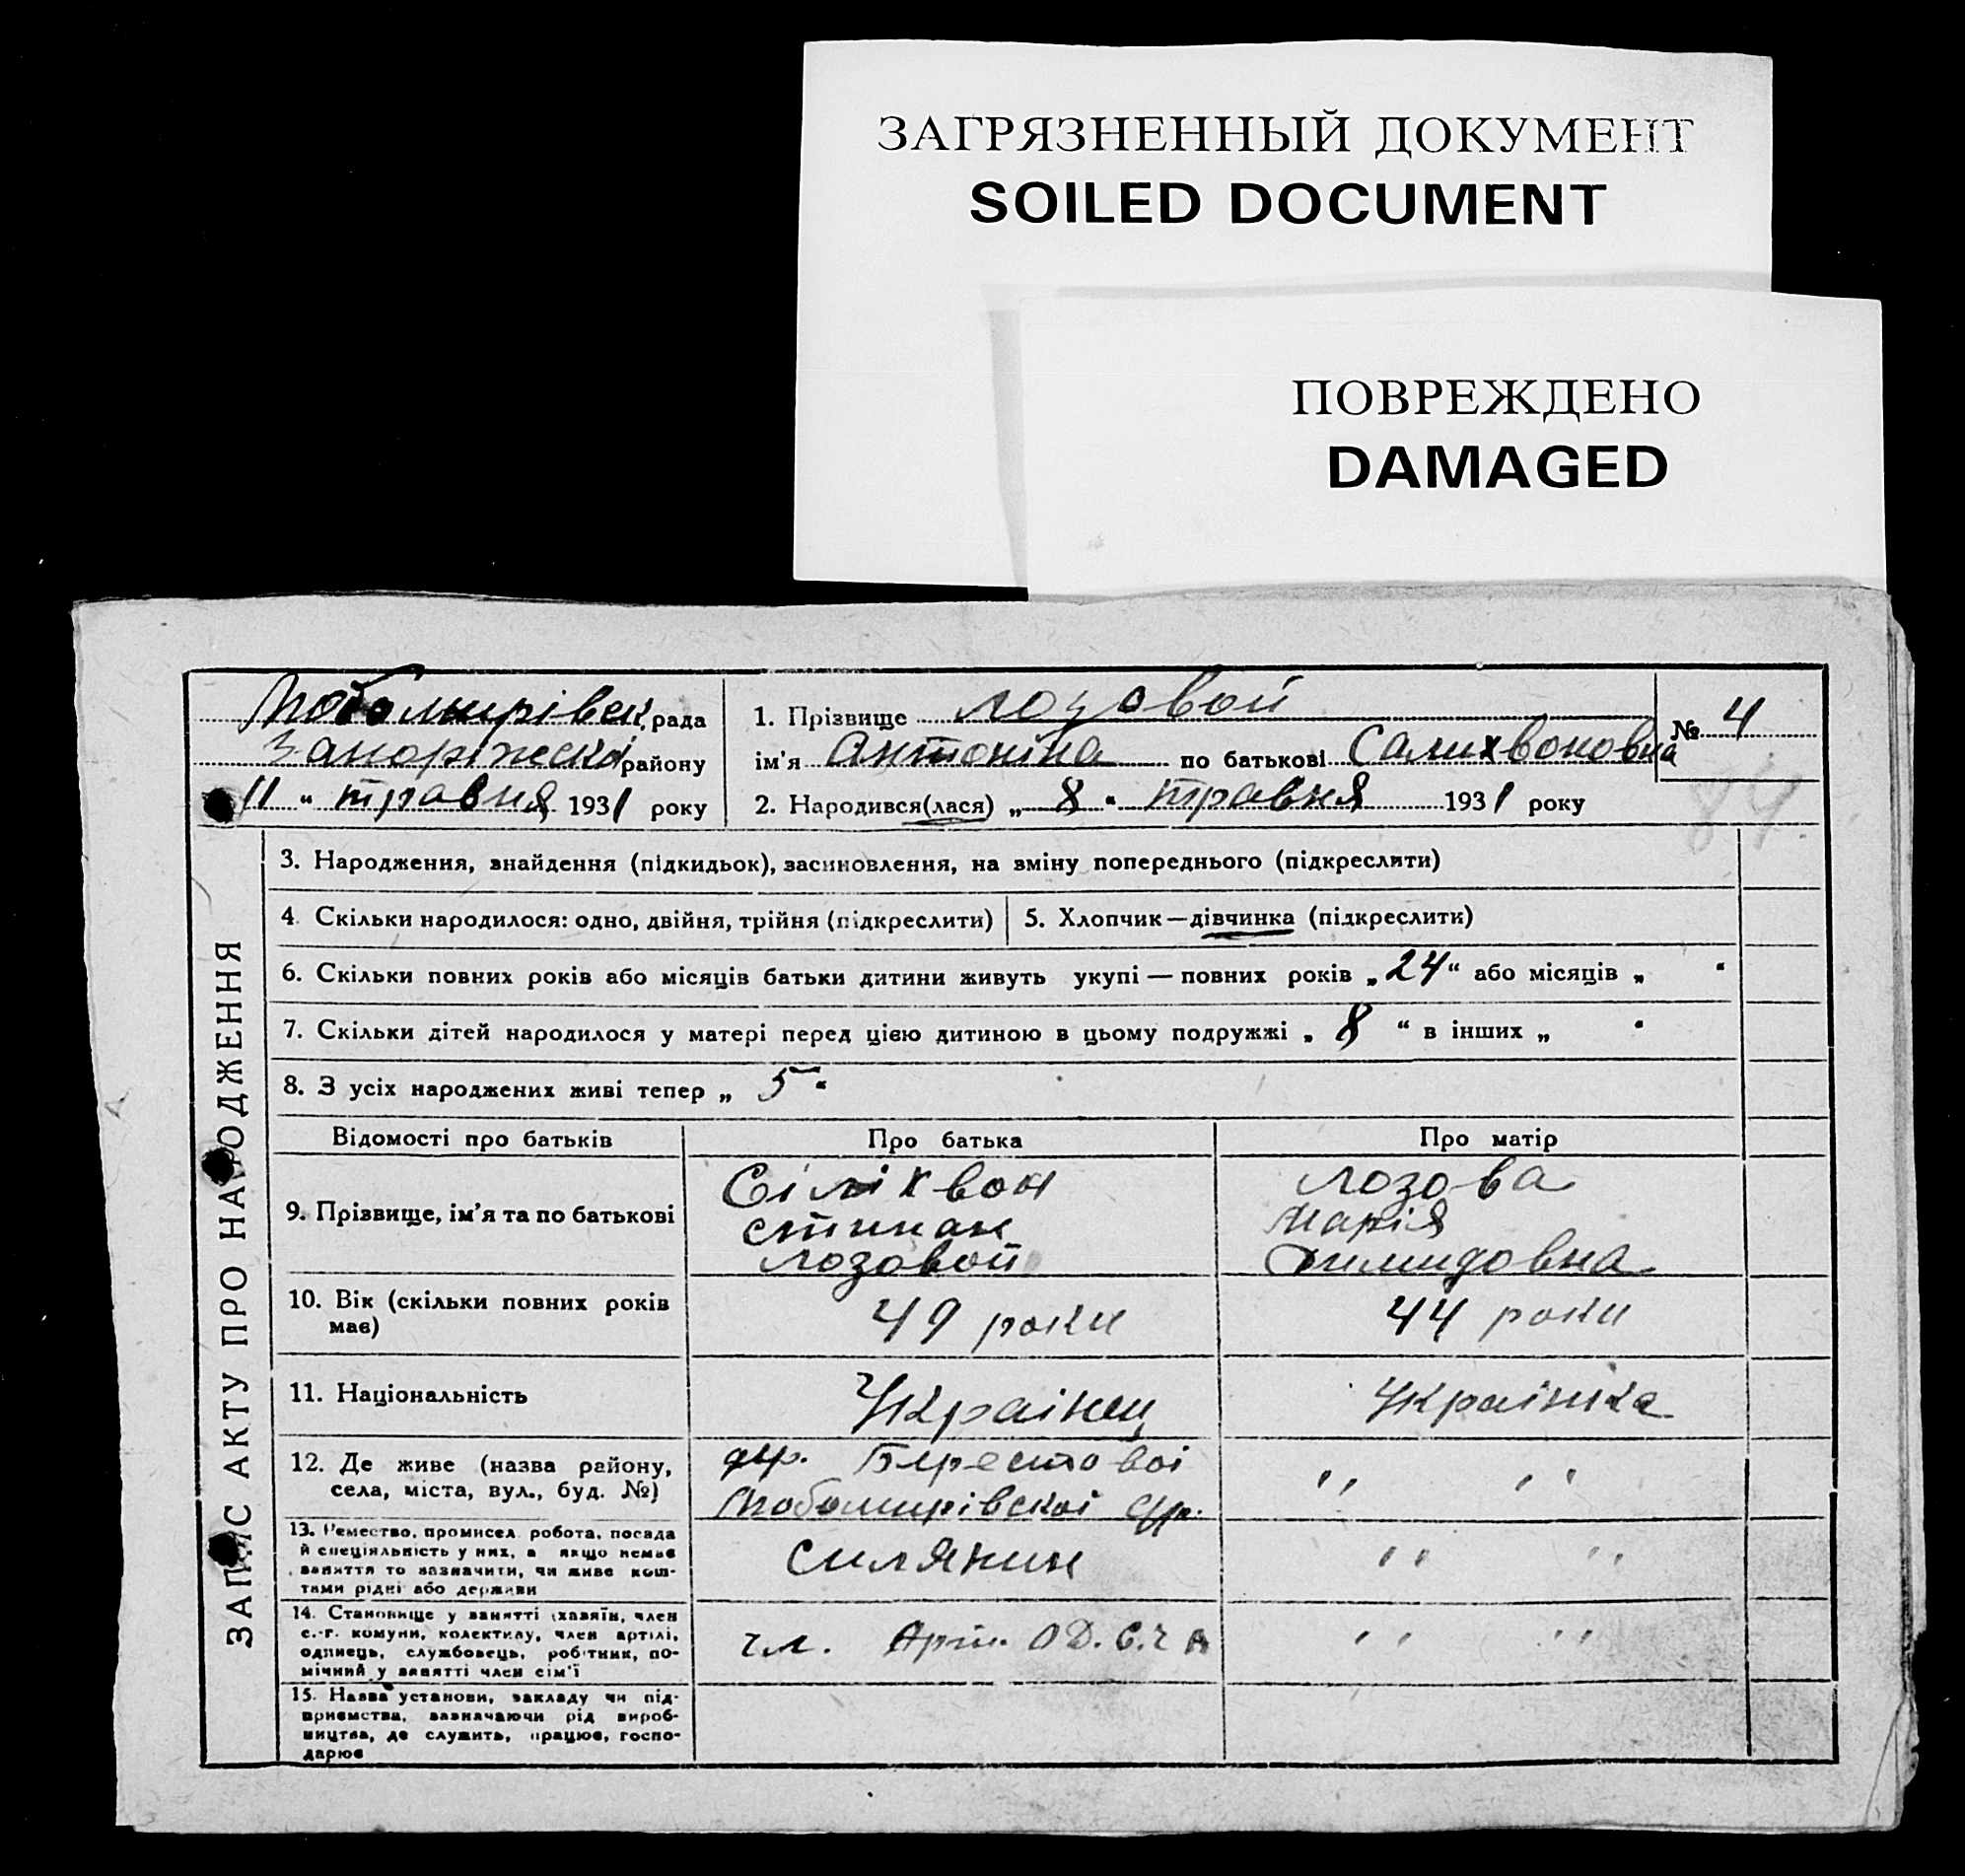 ЗАГРЯЗНЕННЫЙ ДОКУМЕНТ
SOILED DOCUMENT
ПОВРЕЖДЕНО
DAMAGED
Любомирівск. рада
Запоріжскої району
11 " травня 1931 року
1. Прізвище Лозовой
ім'я Антоніна по батькові Салихвоновна
№ 4
2. Народився(лася) „ 8 " травня 1931 року
84
ЗАПИС АКТУ ПРО НАРОДЖЕННЯ
3. Народження, знайдення (підкидьок), засиновлення, на зміну попереднього (підкреслити)
4. Скільки народилося: одно, двійня, трійня (підкреслити)
5. Хлопчик — дівчинка (підкреслити)
6. Скільки повних років або місяців батьки дитини живуть укупі — повних років „ 24 “ або місяців „ “
7. Скільки дітей народилося у матері перед цією дитиною в цьому подружжі „ 8 “ в інших „ “
8. З усіх народжених живі тепер „ 5 “
Відомості про батьків Про батька Про матір
9. Прізвище, ім'я та по батькові
Сіліхвон
стипан
Лозовой
Лозова
Марія
Димидовна
10. Вік (скільки повних років
має)
49 роки
44 роки
11. Національність
Украінец
Украінка
12. Де живе (назва району,
села, міста, вул., буд. №)
Берестовоі
Любомирівскоі
" "
13. Ремество, промисел, робота, посада
й спеціяльність у них, а якщо немає
заняття то зазначити, чи живе кош-
тами рідні або держави
силянин
" "
14. Становище у занятті (хазяїн, член
с.-г. комуни, колективу, член артілі,
одинець, службовець, робітник, по-
мічний у занятті член сім'ї
чл. Арт.
" "
15. Назва установи, закладу чи під-
приємства, зазначаючи рід вироб-
ництва, де служить, працює, госпо-
дарює